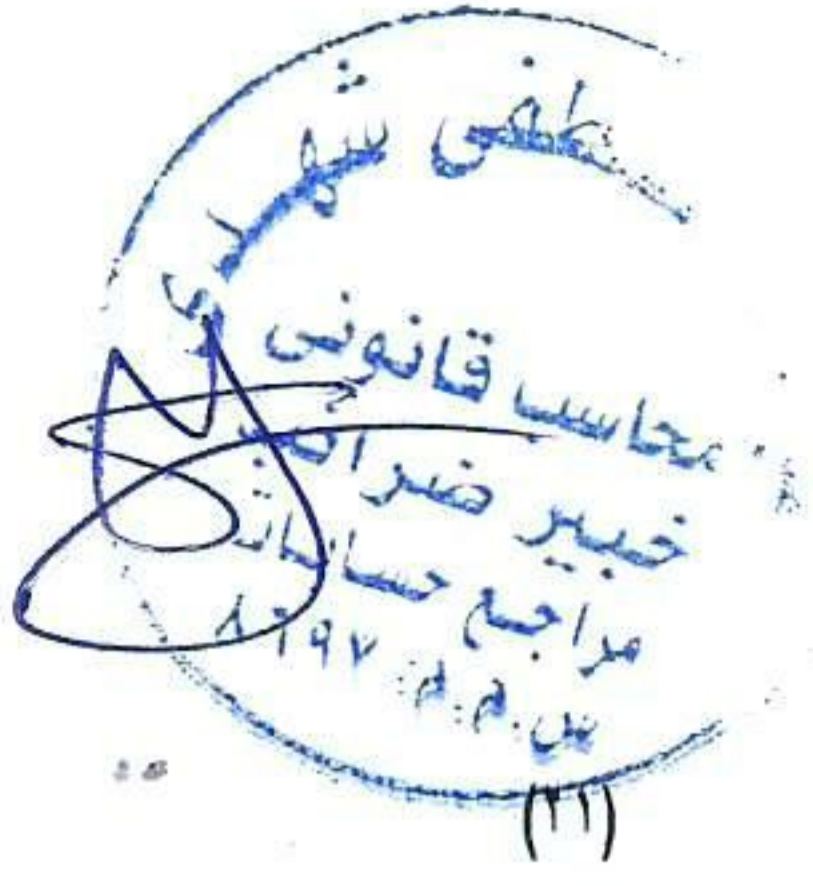 مصطفى شهدى
محاسب قانونى
خبير ضرائب
مراجع حسابات
س.م.م: ٨٦٩٧
(٢١)